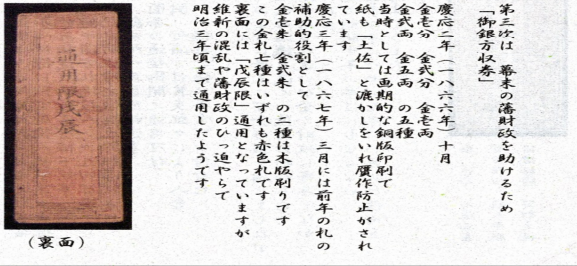 第三次は　幕末の藩財政を助けるため
「御銀方収券」
慶応二年（一八六六年）十月
金壱分　金弐分　金壱両
金弐両　金五両　の五種
当時としては画期的な銅版印刷で
紙も「土佐」と漉かしをいれ贋作防止がされ
ています
慶応三年（一八六七年）三月には前年の札の
補助的役割として
金壱朱　金弐朱　の二種は木版刷りです
この金札七種はいずれも赤色札です
裏面には「戊辰限」通用となっていますが
維新の混乱や藩財政のひっ迫やらで
明治三年頃まで通用したようです
通用限戊辰
（裏面）